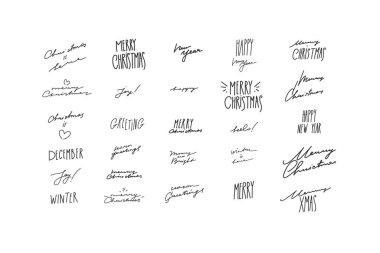 Christmas
=
love
MERRY
CHRISTMAS
new
year
HAPPY
New Year
Merry
CHRISTMAS
merry
Christmas
Joy!
happy
MERRY
CHRISTMAS
Merry
Christmas
Christmas
=
GREETING
MERRY
Christmas
hello!
HAPPY
NEW YEAR
DECEMBER
season
greetings
Merry
and
Bright
winter
Merry
Christmas
Joy!
WINTER
merry
Christmas
season
Greetings
MERRY
Merry
XMAS